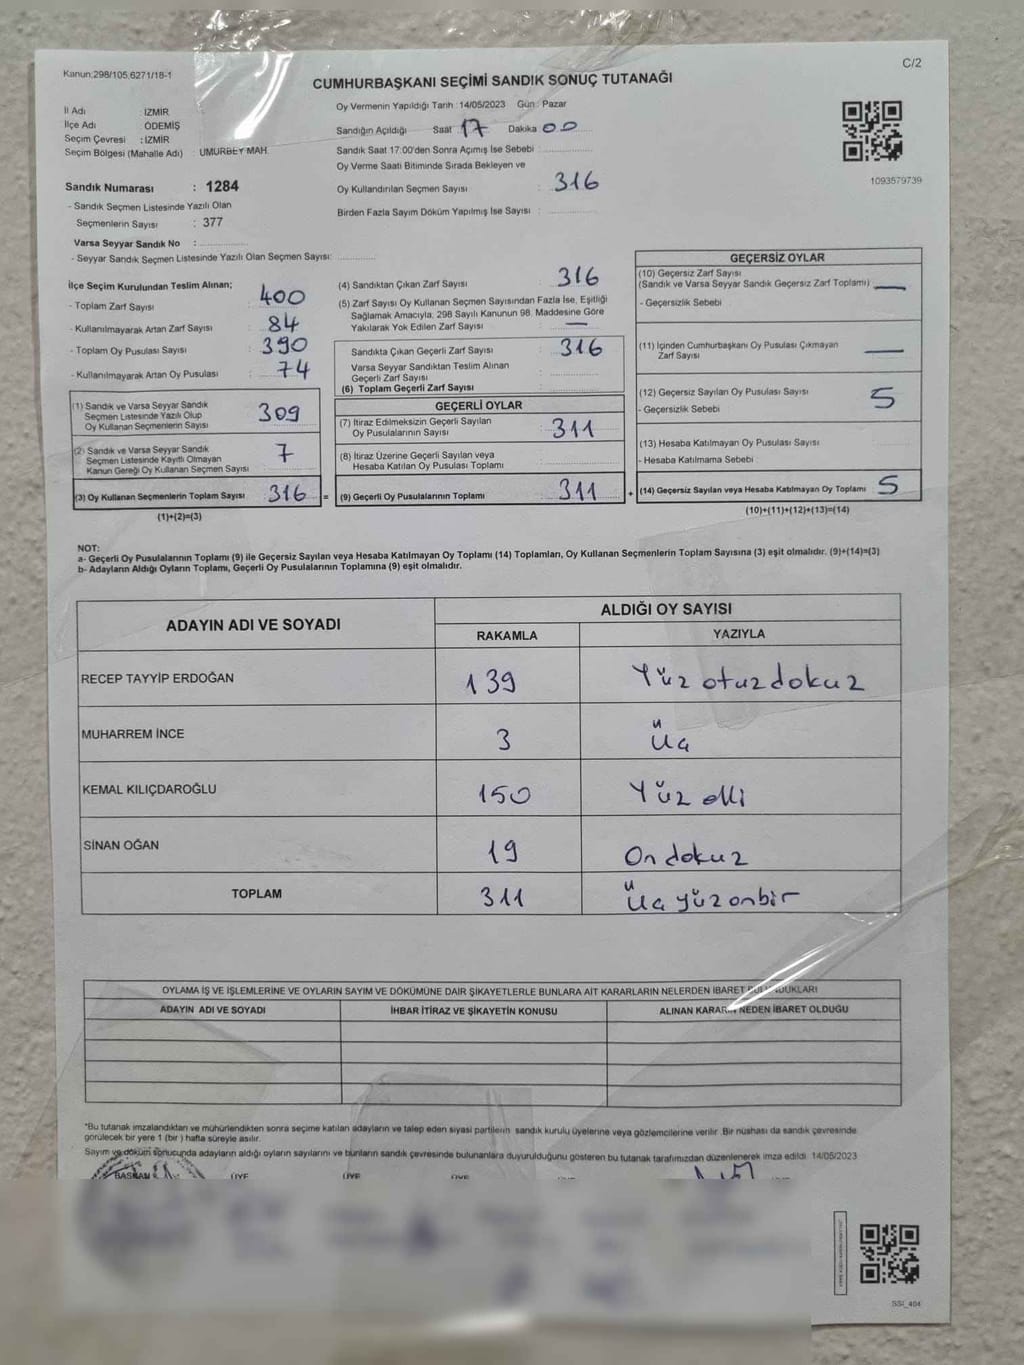 Kanun:298/105,6271/18-1
C/2
CUMHURBAŞKANI SEÇİMİ SANDIK SONUÇ TUTANAĞI
İl Adı : İZMİR
İlçe Adı : ÖDEMİŞ
Seçim Çevresi : İZMİR
Seçim Bölgesi (Mahalle Adı) : UMURBEY MAH.
Sandık Numarası : 1284
- Sandık Seçmen Listesinde Yazılı Olan
Seçmenlerin Sayısı : 377
Varsa Seyyar Sandık No :
- Seyyar Sandık Seçmen Listesinde Yazılı Olan Seçmen Sayısı:
Oy Vermenin Yapıldığı Tarih :14/05/2023 Gün : Pazar
Sandığın Açıldığı Saat 17 Dakika 00
Sandık Saat 17:00'den Sonra Açımış İse Sebebi :
Oy Verme Saati Bitiminde Sırada Bekleyen ve
Oy Kullandırılan Seçmen Sayısı : 316
Birden Fazla Sayım Döküm Yapılmış İse Sayısı :
1093579739
İlçe Seçim Kurulundan Teslim Alınan;
- Toplam Zarf Sayısı : 400
- Kullanılmayarak Artan Zarf Sayısı : 84
- Toplam Oy Pusulası Sayısı : 390
- Kullanılmayarak Artan Oy Pusulası : 74
(1) Sandık ve Varsa Seyyar Sandık
Seçmen Listesinde Yazılı Olup
Oy Kullanan Seçmenlerin Sayısı 309
(2) Sandık ve Varsa Seyyar Sandık
Seçmen Listesinde Kayıtlı Olmayan
Kanun Gereği Oy Kullanan Seçmen Sayısı 7
(3) Oy Kullanan Seçmenlerin Toplam Sayısı 316 =
(1)+(2)=(3)
(4) Sandıktan Çıkan Zarf Sayısı : 316
(5) Zarf Sayısı Oy Kullanan Seçmen Sayısından Fazla İse, Eşitliği
Sağlamak Amacıyla, 298 Sayılı Kanunun 98. Maddesine Göre
Yakılarak Yok Edilen Zarf Sayısı : —
Sandıkta Çıkan Geçerli Zarf Sayısı : 316
Varsa Seyyar Sandıktan Teslim Alınan
Geçerli Zarf Sayısı :
(6) Toplam Geçerli Zarf Sayısı :
GEÇERLİ OYLAR
(7) İtiraz Edilmeksizin Geçerli Sayılan
Oy Pusulalarının Sayısı : 311
(8) İtiraz Üzerine Geçerli Sayılan veya
Hesaba Katılan Oy Pusulası Toplamı
(9) Geçerli Oy Pusulalarının Toplamı : 311 +
GEÇERSİZ OYLAR
(10) Geçersiz Zarf Sayısı
(Sandık ve Varsa Seyyar Sandık Geçersiz Zarf Toplamı) —
- Geçersizlik Sebebi :
(11) İçinden Cumhurbaşkanı Oy Pusulası Çıkmayan
Zarf Sayısı —
(12) Geçersiz Sayılan Oy Pusulası Sayısı 5
- Geçersizlik Sebebi :
(13) Hesaba Katılmayan Oy Pusulası Sayısı
- Hesaba Katılmama Sebebi :
(14) Geçersiz Sayılan veya Hesaba Katılmayan Oy Toplamı 5
(10)+(11)+(12)+(13)=(14)
NOT:
a- Geçerli Oy Pusulalarının Toplamı (9) ile Geçersiz Sayılan veya Hesaba Katılmayan Oy Toplamı (14) Toplamları, Oy Kullanan Seçmenlerin Toplam Sayısına (3) eşit olmalıdır. (9)+(14)=(3)
b- Adayların Aldığı Oyların Toplamı, Geçerli Oy Pusulalarının Toplamına (9) eşit olmalıdır.
ADAYIN ADI VE SOYADI
ALDIĞI OY SAYISI
RAKAMLA YAZIYLA
RECEP TAYYİP ERDOĞAN 139 Yüz otuz dokuz
MUHARREM İNCE 3 Üç
KEMAL KILIÇDAROĞLU 150 Yüz elli
SİNAN OĞAN 19 On dokuz
TOPLAM 311 Üç yüz onbir
OYLAMA İŞ VE İŞLEMLERİNE VE OYLARIN SAYIM VE DÖKÜMÜNE DAİR ŞİKAYETLERLE BUNLARA AİT KARARLARIN NELERDEN İBARET
ADAYIN ADI VE SOYADI İHBAR İTİRAZ VE ŞİKAYETİN KONUSU ALINAN KARARIN NEDEN İBARET OLDUĞU
*Bu tutanak imzalandıktan ve mühürlendikten sonra seçime katılan adayların ve talep eden siyasi partilerin sandık kurulu üyelerine veya gözlemcilerine verilir .Bir nüshası da sandık çevresinde
görülecek bir yere 1 (bir ) hafta süreyle asılır.
Sayım ve döküm sonucunda adayların aldığı oyların sayılarını ve bunların sandık çevresinde bulunanlara duyurulduğunu gösteren bu tutanak tarafımızdan düzenlenerek imza edildi. 14/05/2023
BAŞKAN ÜYE ÜYE ÜYE
SSI_404